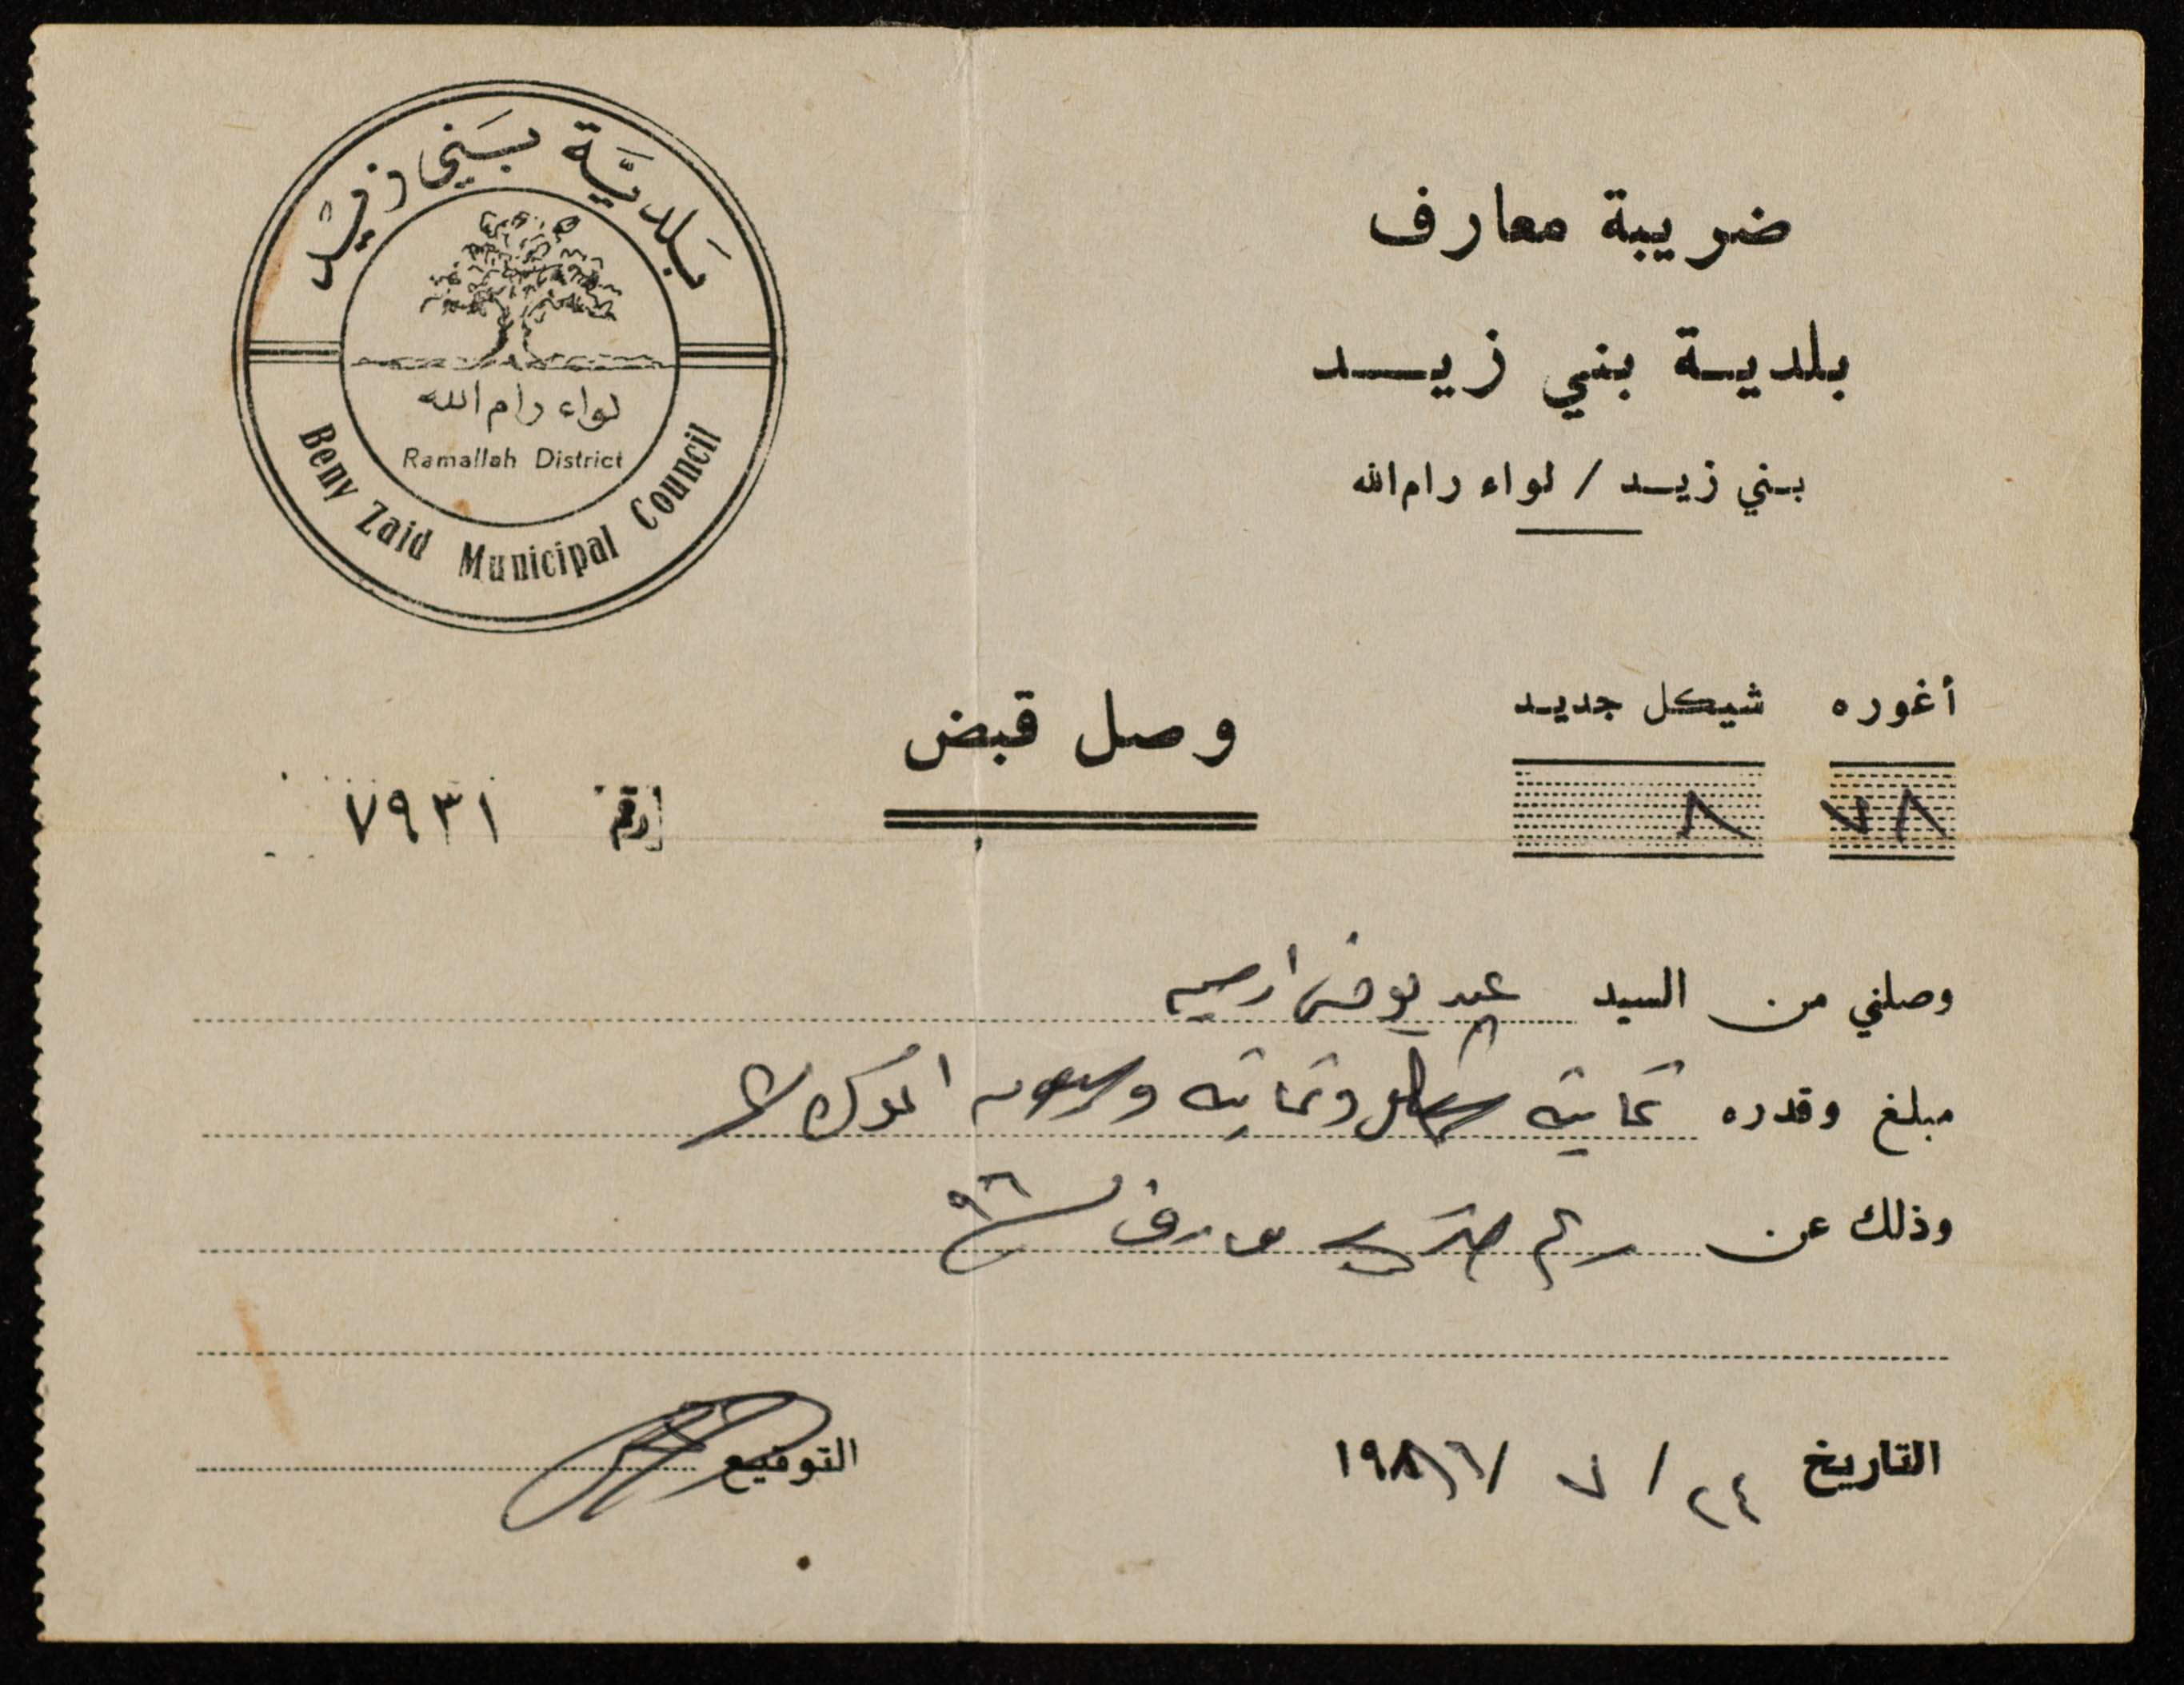 ضريبة معارف
بلديـة بني زيـــد
بـني زيـد / لواء رام الله
بَلديَّة بَني زيْد
لواء رام الله
Ramallah District
Beny Zaid Municipal Council
أغوره شيكل جديد
٧٨ ٨
وصل قبض
رقم ٧٩٣١
وصلني من السيد عبد
مبلغ وقدره ثمانية شيكل وثمانية وسبعون اغورة
وذلك عن معارف
التاريخ ٢٤ / ٧ / ١٩٨٦
التوقيع